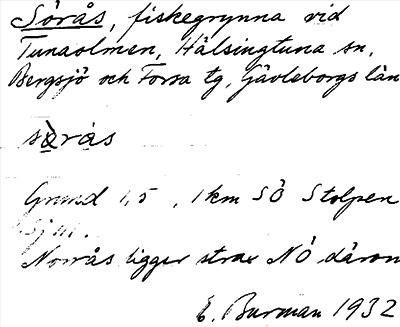 Sörås, fiskegrynna vid
Tunaolmen, Hälsingtuna sn,
Bergsjö och Forsa tg, Gävleborgs län
sö̀rås
Grund 1,5 , 1 km SÖ Stolpen
Norrås ligger strax NÖ därom
E. Burman 1932